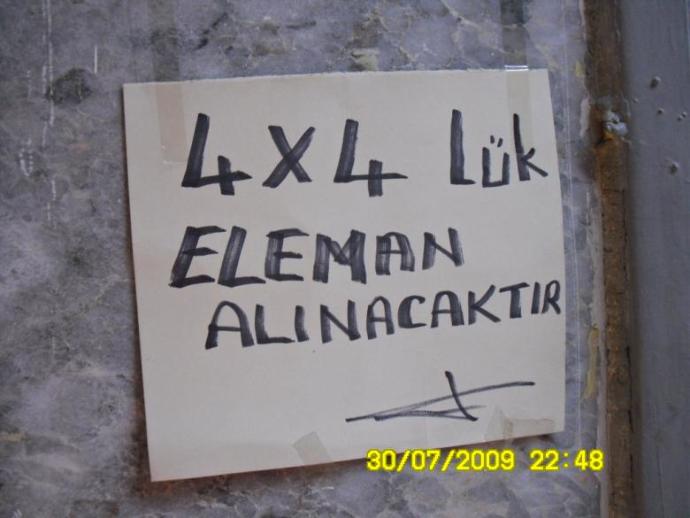 4X4 lük
ELEMAN
ALINACAKTIR
30/07/2009 22:48